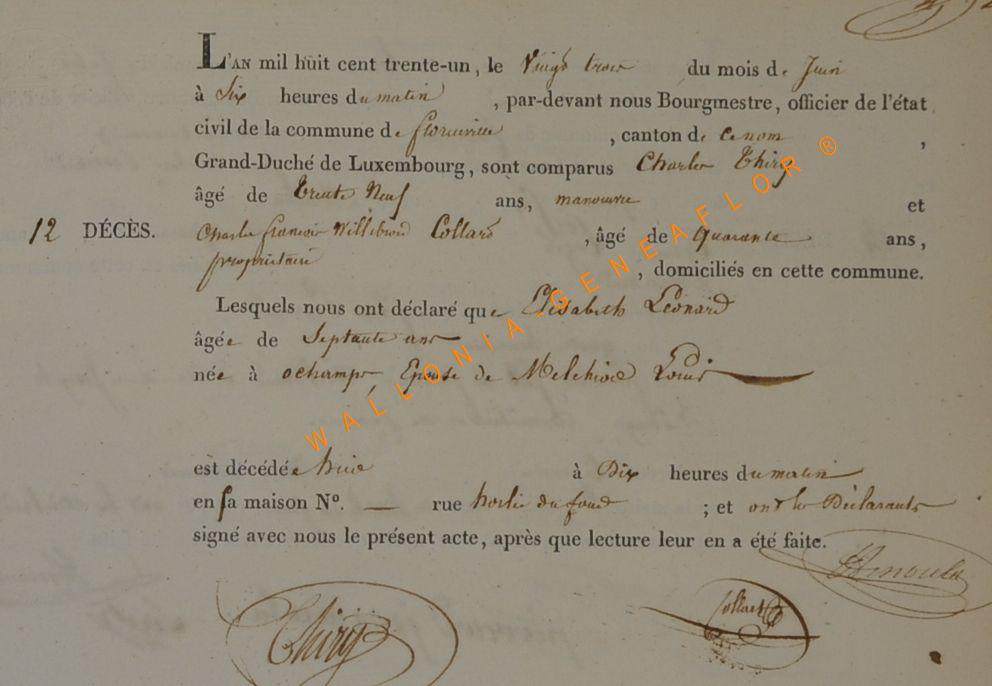 L'AN mil huit cent trente-un, le Vingt trois du mois de Juin
à Six heures du matin, par-devant nous Bourgmestre, officier de l'état
civil de la commune de florenville, canton de ce nom,
Grand-Duché de Luxembourg, sont comparus Charles Thiry
âgé de trente Neuf ans, manœuvre et
12 DÉCÈS. Charle françois Willibrord Collard, âgé de quarante ans,
propriétaire, domiciliés en cette commune.
Lesquels nous ont déclaré que Elisabeth Léonard
âgée de Septante ans
née à ochamps, Epouse de Melchior Louis
est décédée hier à Dix heures du matin
en sa maison N°. — rue du fond; et ont les Déclarants
signé avec nous le présent acte, après que lecture leur en a été faite.
Thiry Collard
WALLONIA-GENEAFLOR ®